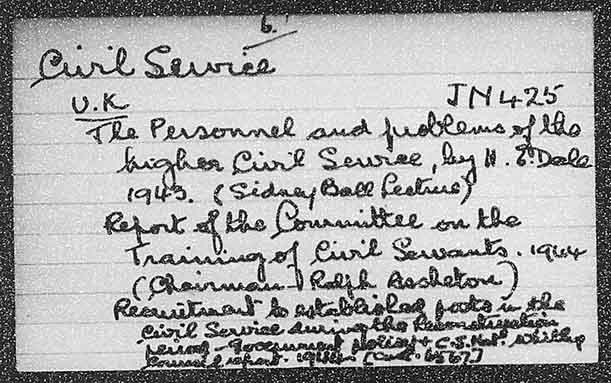 6.
Civil Service
U.K JN425
The Personnel and problems of the
higher Civil Service, by H. E. Dale
1943. (Sidney Ball Lecture)
Report of the Committee on the
Training of Civil Servants. 1944
(Chairman - Ralph Assheton)
Recruitment to established posts in the
Civil Service during the Reconstruction
period - Government policy + C.S. Nat. Whitley
Council report. 1944. (Cmd. 6567)